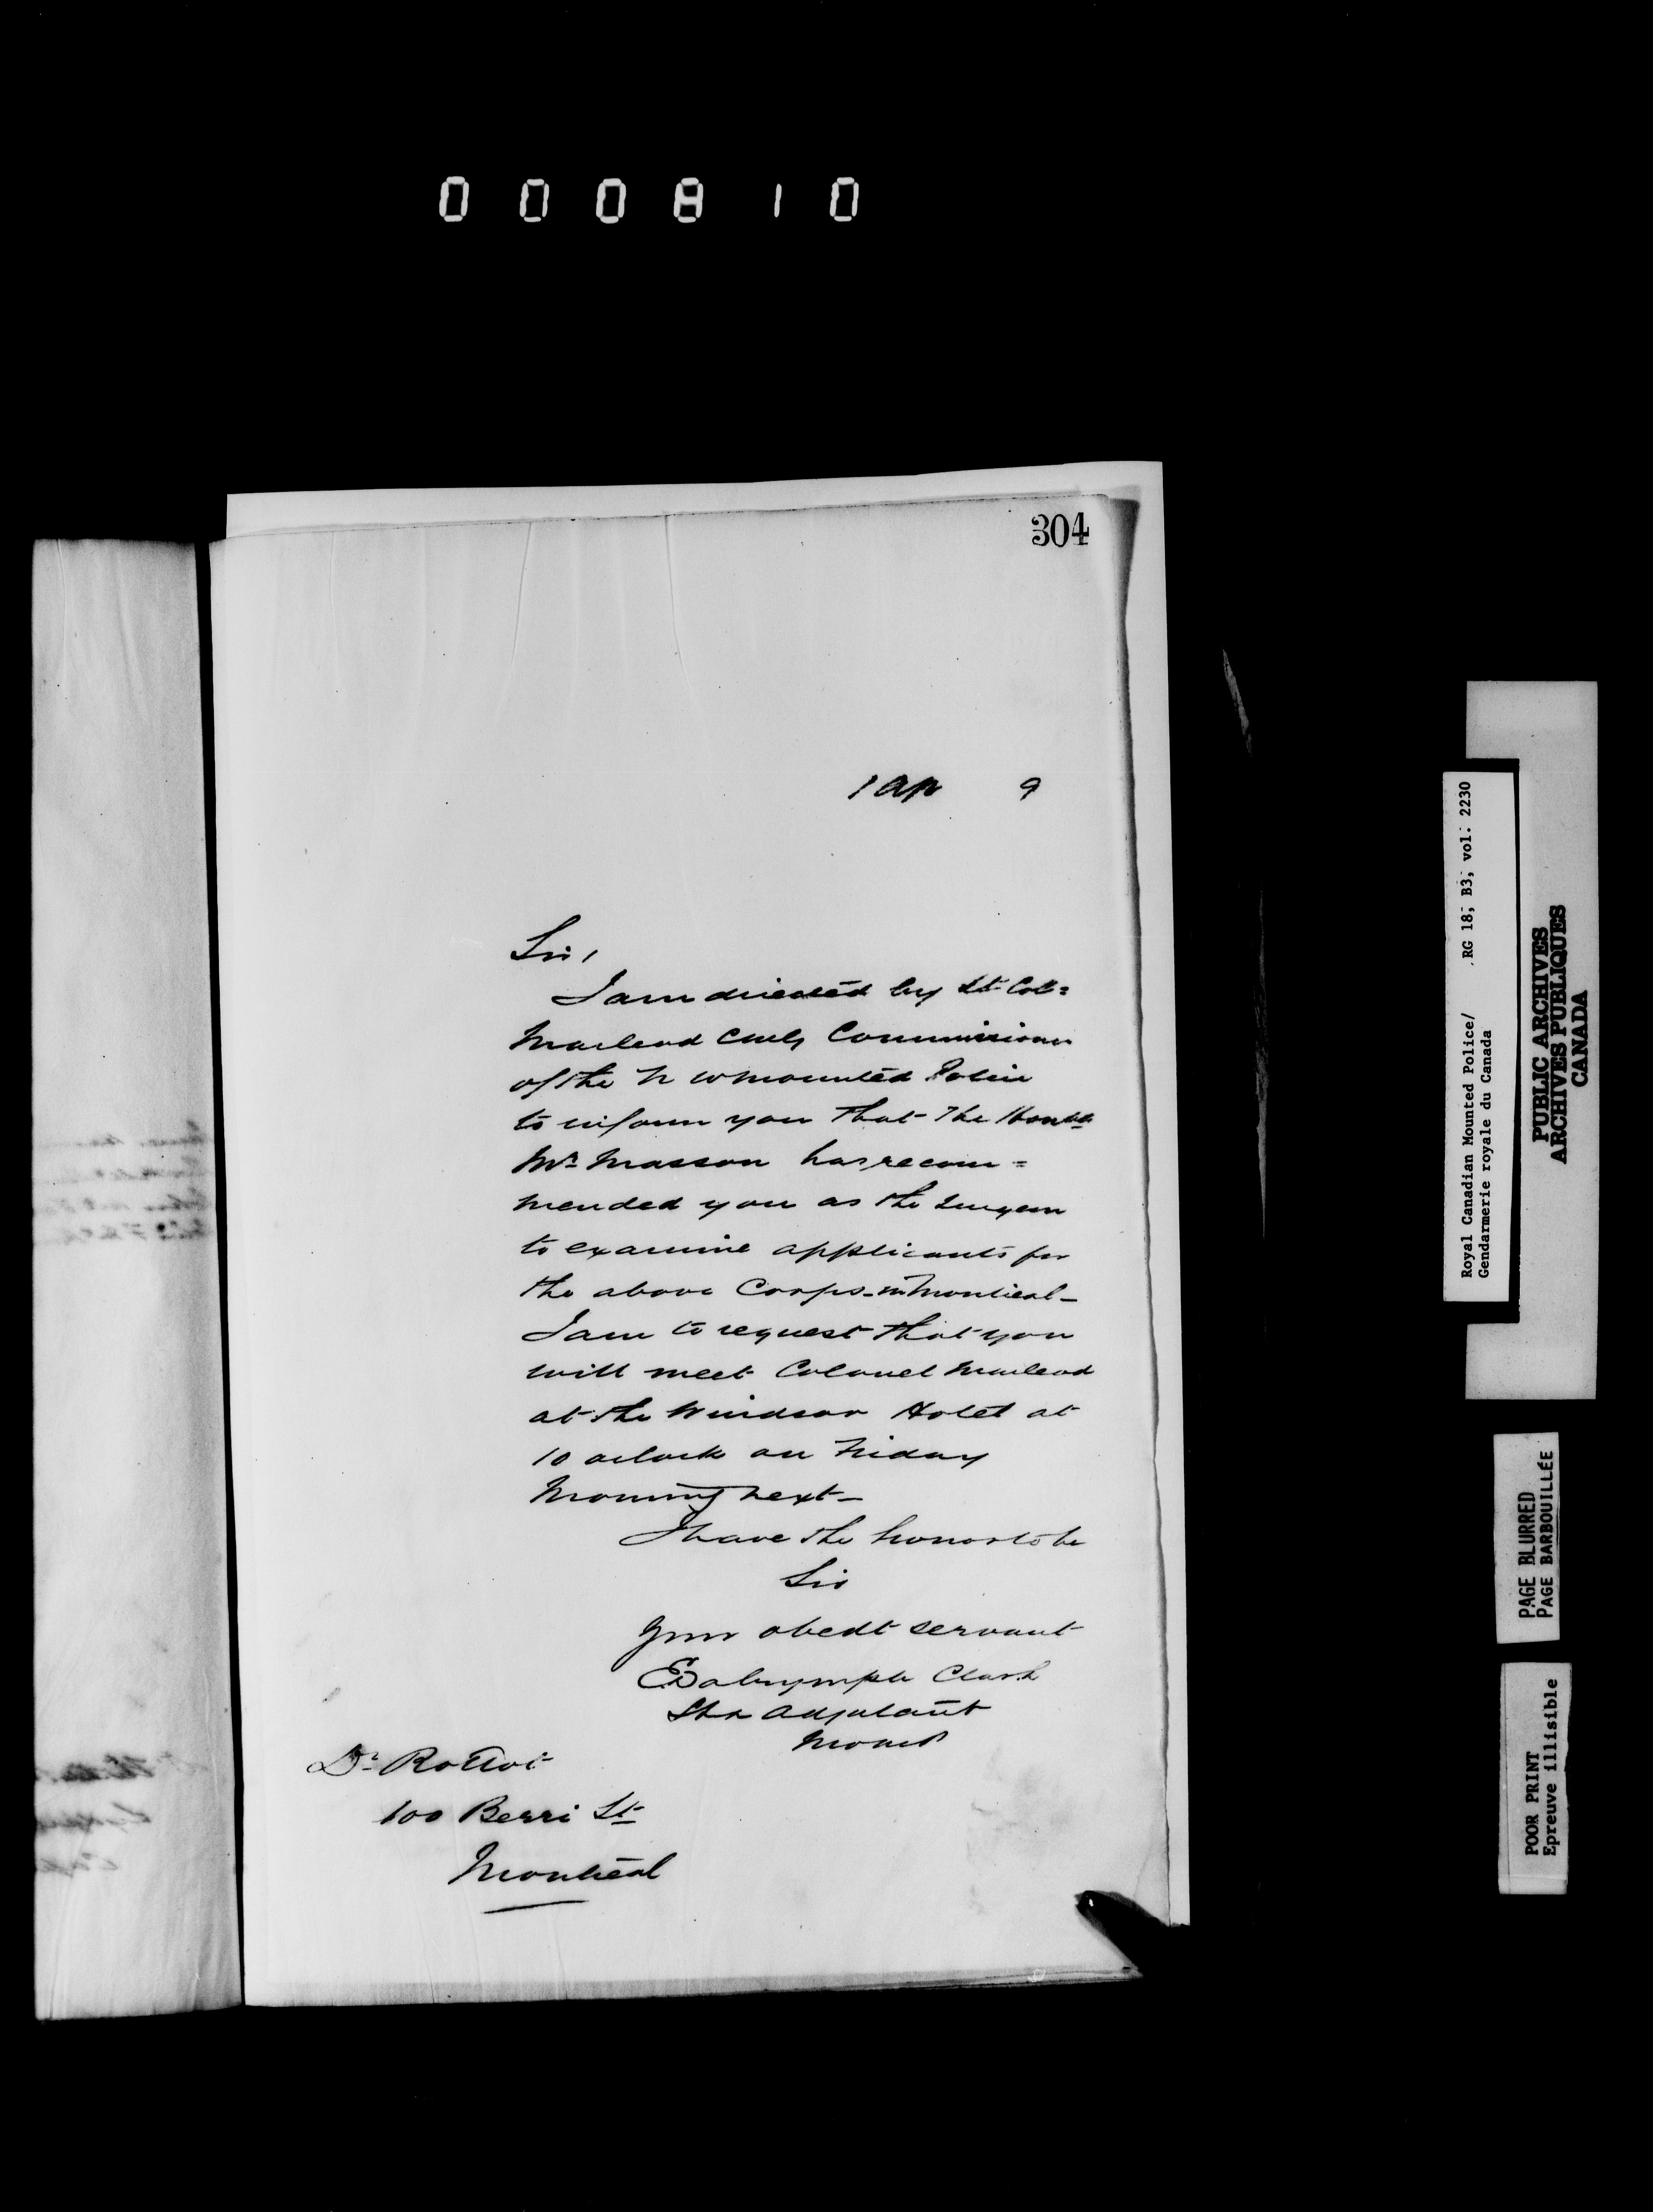 000810
304
1 Ap 9
Sir,
I am directed by Lt Col=
Macleod CMG, Commissioner
of the N W Mounted Police
to inform you that The Honble
Mr Masson has recom=
mended you as the Surgeon
to examine applicants for
the above Corps in Montreal -
I am to request that you
will meet Colonel Macleod
at the Windsor Hotel at
10 oclock on Friday
Morning next -
I have the honor to be
Sir
Your obedt servant
E Dalrymple Clark
Adjutant
Dr Rottot
100 Berri St
Montreal
Royal Canadian Mounted Police/ RG 18, B3, vol. 2230
Gendarmerie royale du Canada
PUBLIC ARCHIVES
ARCHIVES PUBLIQUES
CANADA
PAGE BLURRED
PAGE BARBOUILLÉE
POOR PRINT
Epreuve illisible